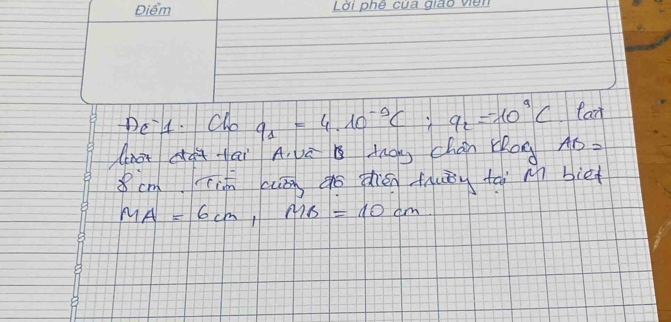 Điểm
Lời phê của giáo viên
Đề 1. Cho q₁ = 4.10⁻⁹C ; q₂ = 10⁹C. lần
lượt đặt tại A và B trong chân không AB =
8 cm. Tìm cường độ điện trường tại M biết
MA = 6cm, MB = 10 cm.